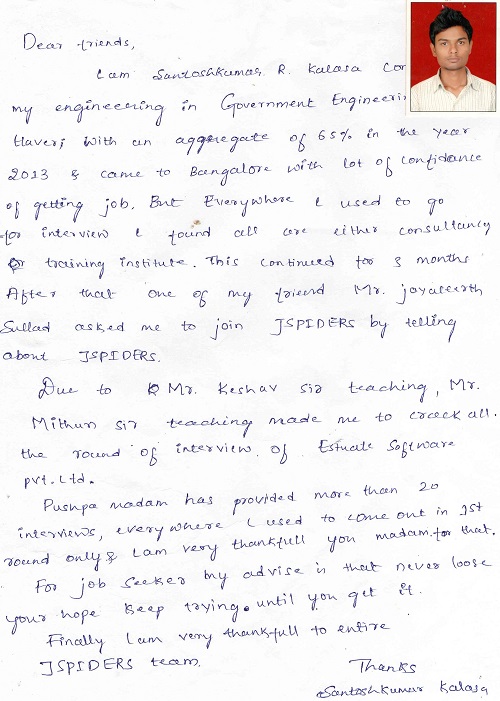 Dear friends,
I am Santoshkumar R. Kalasa Co
my engineering in Government Engineerin
Haveri with an aggregate of 65% in the year
2013 & came to Bangalore with lot of confidance
of getting job. But Everywhere I used to go
for interview I found all are either consultancy
or training institute. This continued for 3 months
After that one of my friend Mr. joyateerth
Sullad asked me to join JSPIDERS by telling
about JSPIDERS.
Due to Mr. Keshav sir teaching, Mr.
Mithun sir teaching made me to crack all.
the round of interview of Estuate Software
pvt. Ltd.
Pushpa madam has provided more than 20
interviews, everywhere I used to come out in 1st
round only & I am very thankfull you madam for that.
For job seeker my advise is that never loose
your hope keep trying. until you get it.
Finally I am very thankfull to entire
JSPIDERS team.
Thanks
Santoshkumar Kalasa